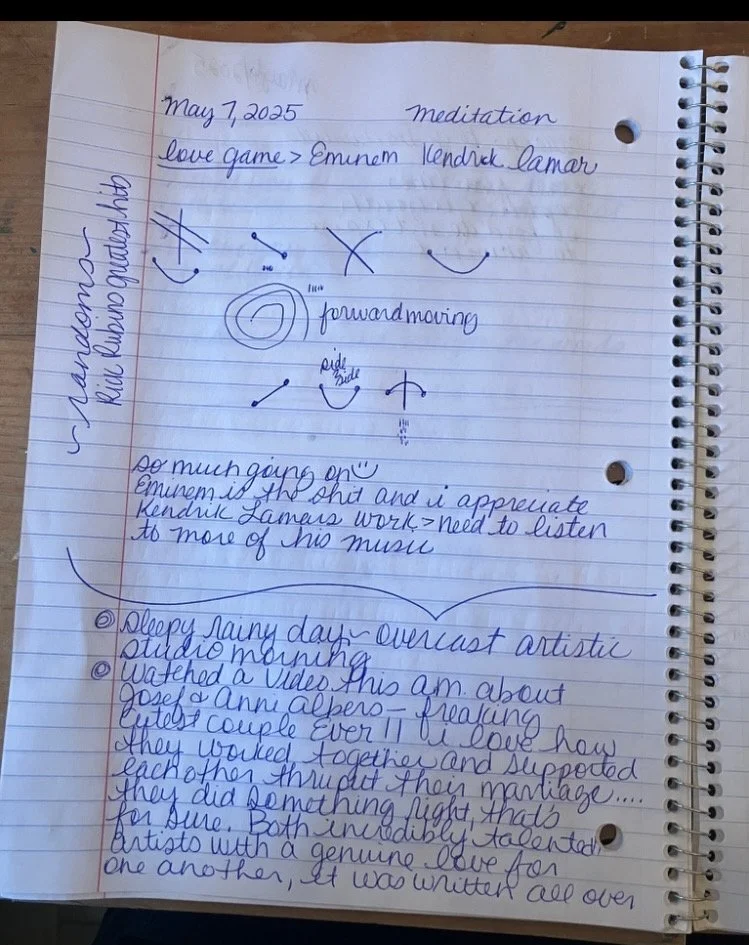 May 7, 2025 meditation
love game > Eminem Kendrick Lamar
~randoms~
Rick Rubino greatest hits
forward moving
side
side
so much going on
Eminem is the shit and i appreciate
Kendrik Lamars work > need to listen
to more of his music
sleepy rainy day ~ overcast artistic
studio morning
watched a video this am. about
Josef & Anni Albers — freaking
cutest couple Ever!! i love how
they worked together and supported
each other thruout their marriage....
they did something right, that's
for sure. Both incredibly talented
artists with a genuine love for
one another, it was written all over